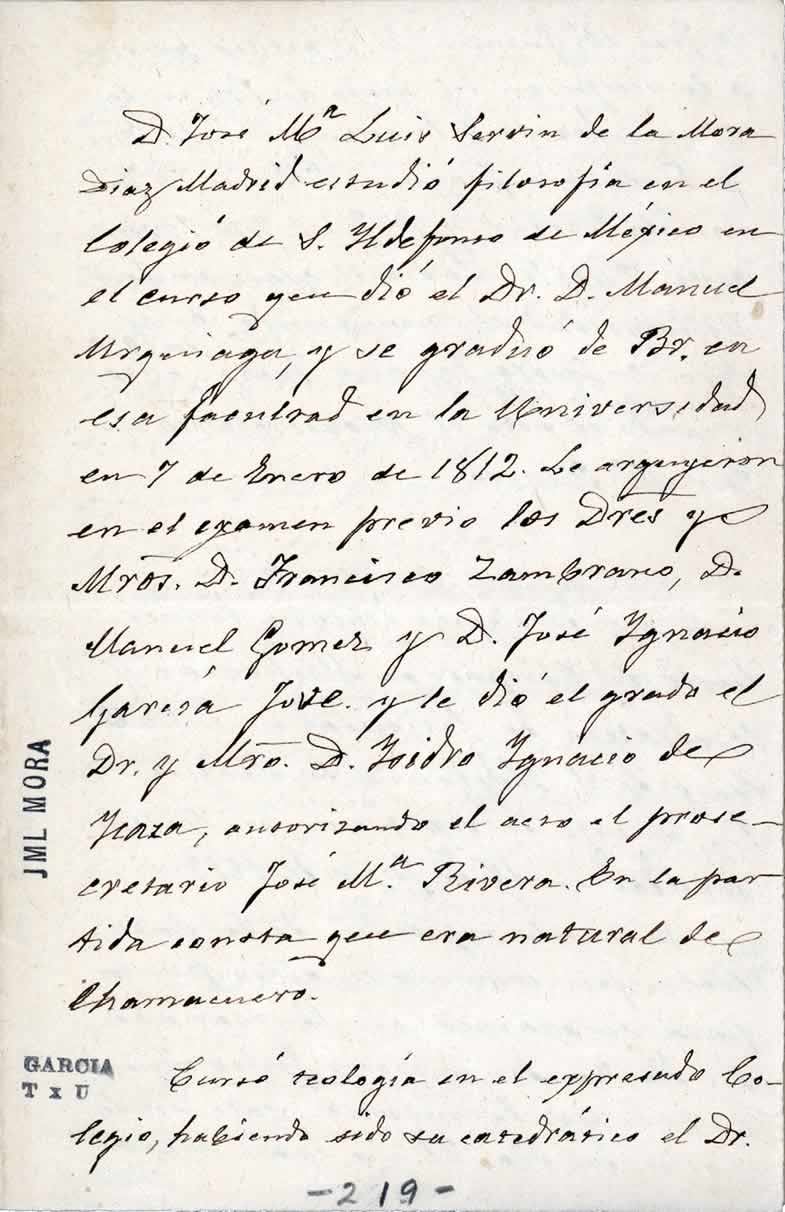 D. José Mª Luis Servin de la Mora
Diaz Madrid estudió filosofía en el
Colegió de S. Yldefonso de México en
el curso que dió el Dr. D. Manuel
Urquiaga, y se graduó de Br. en
esa facultad en la Universidad
en 7 de Enero de 1812. Le arguyeron
en el examen previo los Dres y
Mros. D. Francisco Zambrano, D.
Manuel Gomez y D. José Ygnacio
García Jove. y le dió el grado el
Dr. y Mro. D. Ysidro Ygnacio de
Ycaza, autorizando el acto el prose-
cretario José M.ª Rivera. En la par
tida consta que era natural de
Chamacuero.
Cursó teología en el expresado Co-
legio, habiendo sido su catedrático el Dr.
JML MORA
GARCIA
T x U
-219-